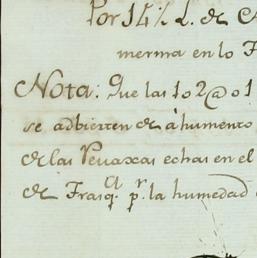 Por 14½ L. de
merma en lo
Nota: Que las 10 2@ 01
se adbierten de áhumento
de las Pevaxas echas en el
de Frasq.ᵃ p.ʳ la humedad